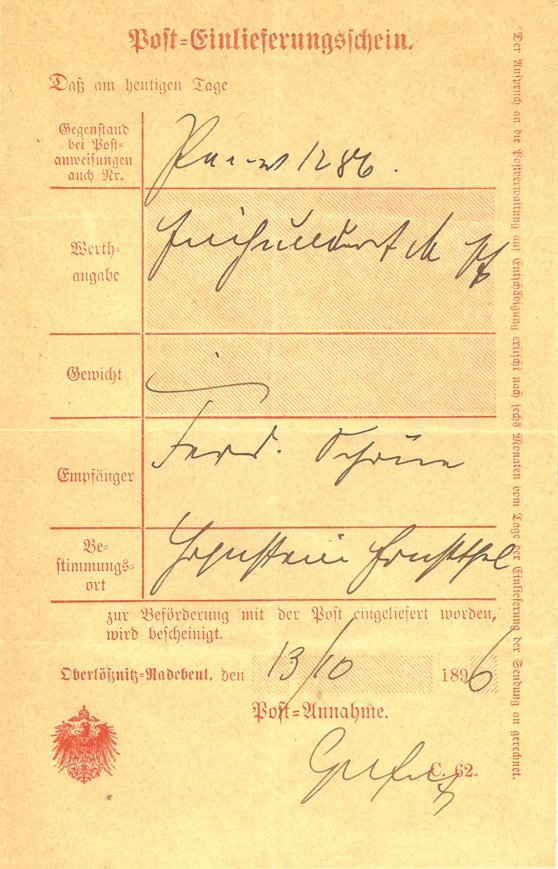 Post-Einlieferungsschein.
Daß am heutigen Tage
Gegenstand
bei Post-
anweisungen
auch Nr.
1286.
Werth-
angabe
M Pf
Gewicht
Empfänger
Ferd. Schöne
Be-
stimmungs-
ort
Hohenstein Ernstthal
zur Beförderung mit der Post eingeliefert worden,
wird bescheinigt.
Oberlößnitz-Radebeul, den 13/10 1896
Post-Annahme.
C. 62.
Der Anspruch an die Postverwaltung auf Entschädigung erlischt nach sechs Monaten vom Tage der Einlieferung der Sendung an gerechnet.